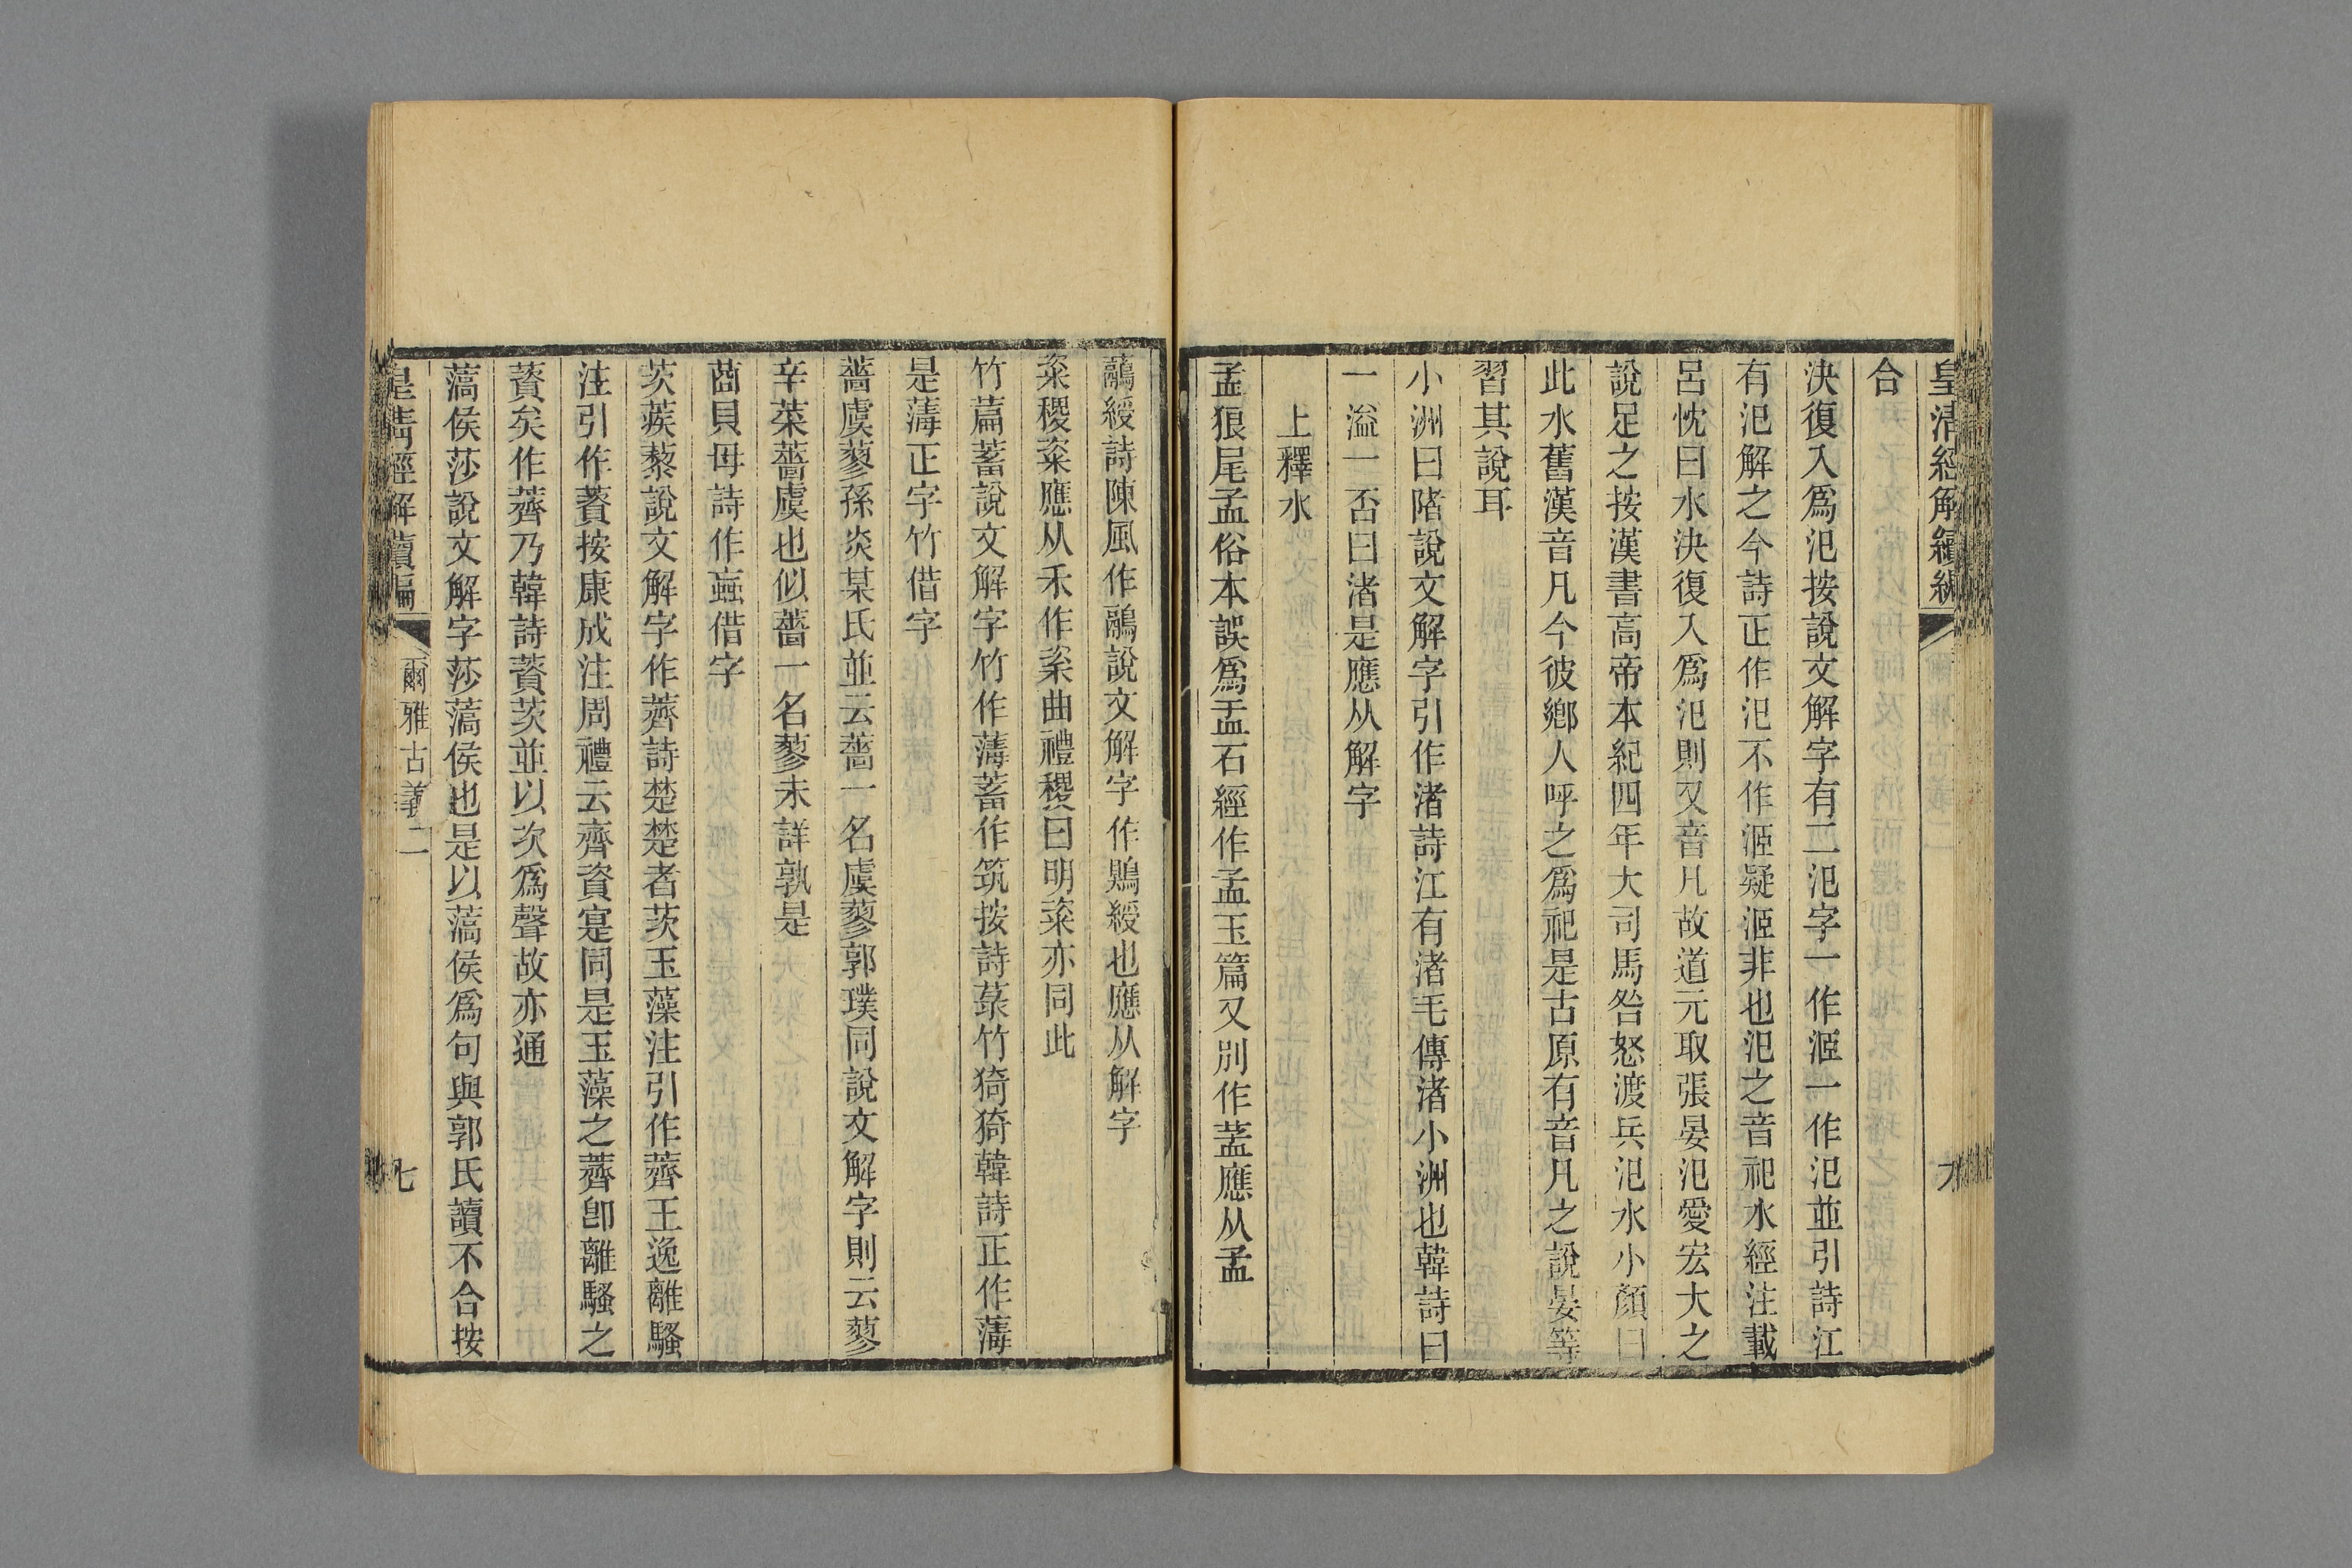 皇清經解續編
合
決復入爲汜按說文解字有二汜字一作洍一作汜並引詩江
有汜解之今詩正作汜不作洍疑洍非也汜之音祀水經注載
呂忱曰水決復入爲汜則又音凡故道元取張晏汜愛宏大之
說足之按漢書高帝本紀四年大司馬咎怒渡兵汜水小顏曰
此水舊漢音凡今彼鄉人呼之爲祀是古原有音凡之說晏等
習其說耳
小洲曰階說文解字引作渚詩江有渚毛傳渚小洲也韓詩曰
一溢一否曰渚是應从解字
上釋水
孟狼尾孟俗本誤爲盂石經作孟玉篇又別作䓝應从孟
鷊綬詩陳風作鷊說文解字作鷊綬也應从解字
粢稷粢應从禾作秶曲禮稷曰明粢亦同此
竹萹蓄說文解字竹作薄蓄作筑按詩菉竹猗猗韓詩正作薄
是薄正字竹借字
薔虞蓼孫炎某氏並云薔一名虞蓼郭璞同說文解字則云蓼
辛菜薔虞也似薔一名蓼未詳孰是
莔貝母詩作蝱借字
茨蒺藜說文解字作薺詩楚楚者茨玉藻注引作薺王逸離騷
注引作薋按康成注周禮云齊資寔同是玉藻之薺卽離騷之
薋矣作薺乃韓詩薋茨並以次爲聲故亦通
薃侯莎說文解字莎薃侯也是以薃侯爲句與郭氏讀不合按
皇清經解續編 爾雅古義二 七